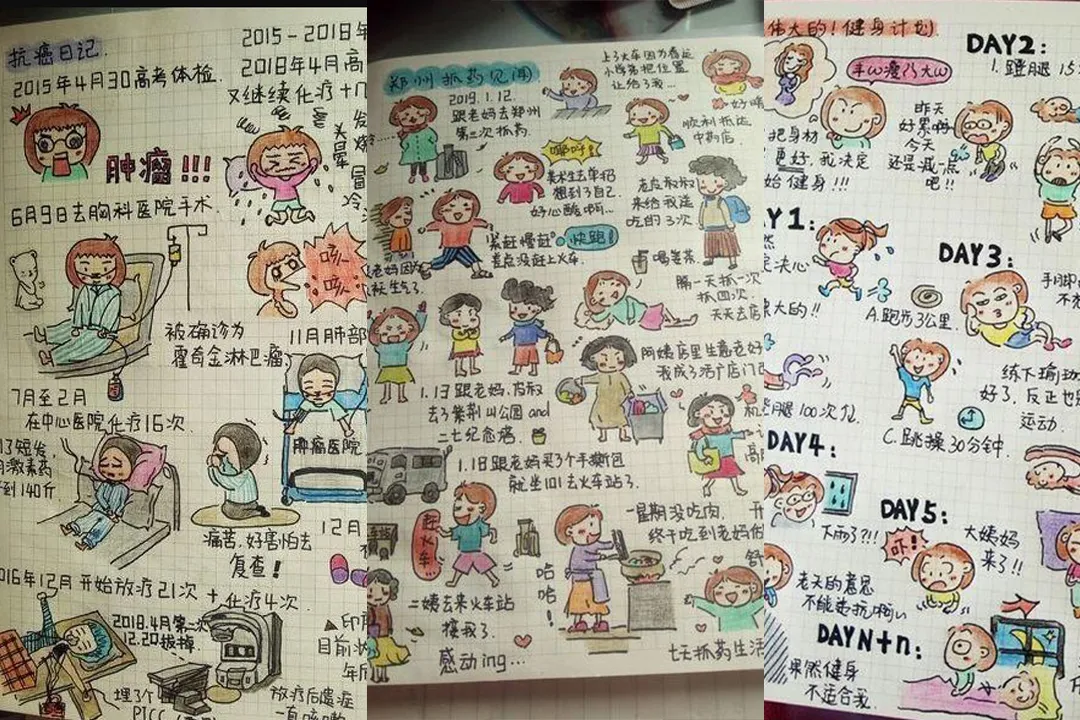 抗癌日记.
2015年4月30高考体检.
肿瘤!!!
6月9日去胸科医院手术.
被确诊为
霍奇金淋巴瘤
咳
咳
7月至2月
在中心医院化疗16次
了短发,
激素药
到140斤.
痛苦,好害怕去
复查!
016年12月 开始放疗21次 + 化疗4次.
2018.4月第二次
12.20拔掉
埋3个
PICC
2015-2018年
2018年4月高
又继续化疗十几
头晕
冒冷
11月肺部
肿瘤医院
12月
目前
放疗后遗症
一直咳嗽
郑州抓药见闻
2019.1.12.
跟老妈去郑州
第二次抓药.
上了火车因为看近
小学弟把位置
让给了我...
一好晴
顺利抵达
中药店.
哪吁!
美术生去单招
想到了自己
好心酸啊...
老皮叔叔
来给我送
吃的3次
紧赶慢赶。快跑!
差点没赶上火车.
老妈因
生气了.
喝姜茶
隔一天抓一次
抓四次
天天去店
阿姨店里生意老好
我成了活广店门
1.13跟老妈、皮叔
去了紫荆山公园 and
二七纪念塔.
1.18跟老妈买3个手撕包
就坐101去火车站了.
赶火车
一星期没吃肉,
终于吃到老妈做
哈
哈
!
二姨去来火车站
接我了.
感动ing...
七天抓药生活
伟大的!健身计划
手ω瘦乃大ω
把身材
更好,我决定
始健身!!!
DAY2:
1.蹬腿 15
昨天
好累啊
今天
还是减一点
吧!!
Y1:
定决心
大的!!
A.跑步3公里.
100次儿
C.跳操30分钟.
DAY3:
手脚
不
练下瑜动
好了,反正也
运动.
DAY4:
下雨了?!!
老天的意思
不能违抗啊
DAY5:
吓!
大姨妈
来了!!
DAYN+n:
果然健身
不适合我